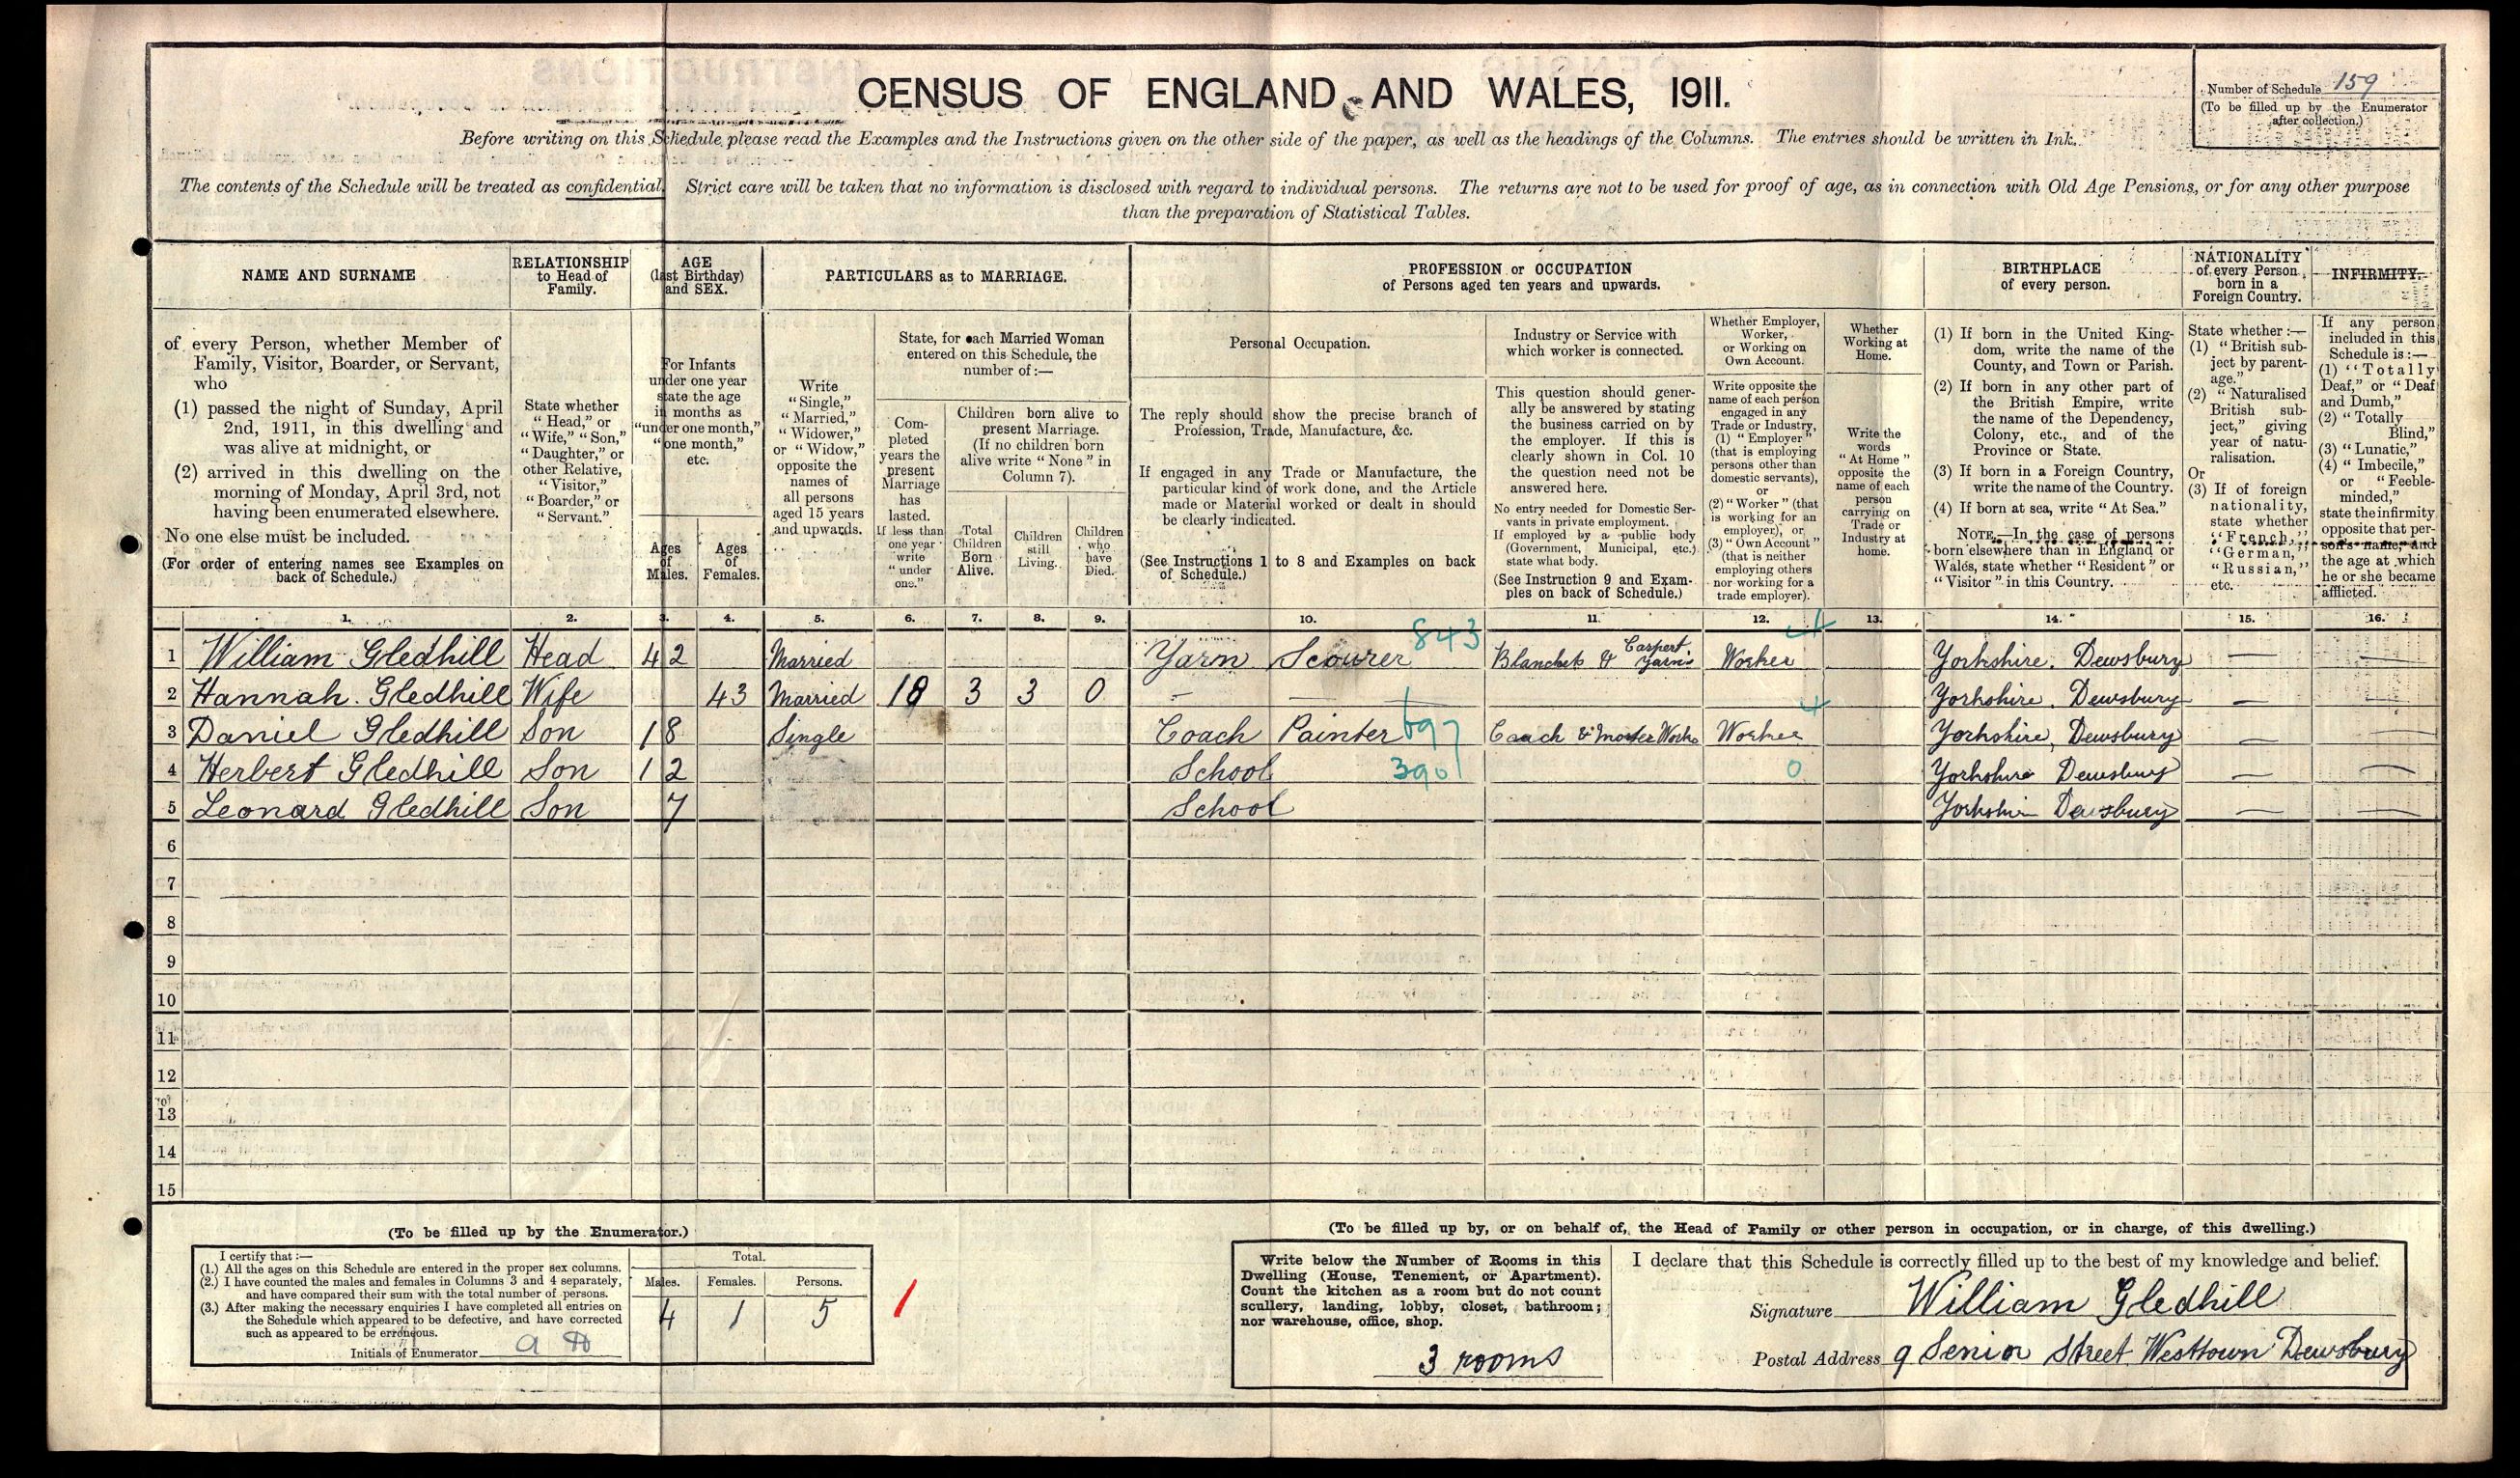 CENSUS OF ENGLAND AND WALES, 1911.
Number of Schedule 159
(To be filled up by the Enumerator
after collection.)
Before writing on this Schedule please read the Examples and the Instructions given on the other side of the paper, as well as the headings of the Columns. The entries should be written in Ink.
The contents of the Schedule will be treated as confidential. Strict care will be taken that no information is disclosed with regard to individual persons. The returns are not to be used for proof of age, as in connection with Old Age Pensions, or for any other purpose
than the preparation of Statistical Tables.
NAME AND SURNAME
of every Person, whether Member of
Family, Visitor, Boarder, or Servant,
who
(1) passed the night of Sunday, April
2nd, 1911, in this dwelling and
was alive at midnight, or
(2) arrived in this dwelling on the
morning of Monday, April 3rd, not
having been enumerated elsewhere.
No one else must be included.
(For order of entering names see Examples on
back of Schedule.)
RELATIONSHIP
to Head of
Family.
State whether
"Head," or
"Wife," "Son,"
"Daughter," or
other Relative,
"Visitor,"
"Boarder," or
"Servant."
AGE
(last Birthday)
and SEX.
For Infants
under one year
state the age
in months as
"under one month,"
"one month,"
etc.
Ages
of
Males.
Ages
of
Females.
PARTICULARS as to MARRIAGE.
Write
"Single,"
"Married,"
"Widower,"
or "Widow,"
opposite the
names of
all persons
aged 15 years
and upwards.
State, for each Married Woman
entered on this Schedule, the
number of:—
Com-
pleted
years the
present
Marriage
has
lasted.
If less than
one year
write
"under
one."
Children born alive to
present Marriage.
(If no children born
alive write "None" in
Column 7).
Total
Children
Born
Alive.
Children
still
Living.
Children
who
have
Died.
PROFESSION or OCCUPATION
of Persons aged ten years and upwards.
Personal Occupation.
The reply should show the precise branch of
Profession, Trade, Manufacture, &c.
If engaged in any Trade or Manufacture, the
particular kind of work done, and the Article
made or Material worked or dealt in should
be clearly indicated.
(See Instructions 1 to 8 and Examples on back
of Schedule.)
Industry or Service with
which worker is connected.
This question should gener-
ally be answered by stating
the business carried on by
the employer. If this is
clearly shown in Col. 10
the question need not be
answered here.
No entry needed for Domestic Ser-
vants in private employment.
If employed by a public body
(Government, Municipal, etc.)
state what body.
(See Instruction 9 and Exam-
ples on back of Schedule.)
Whether Employer,
Worker,
or Working on
Own Account.
Write opposite the
name of each person
engaged in any
Trade or Industry,
(1) "Employer"
(that is employing
persons other than
domestic servants),
or
(2) "Worker" (that
is working for an
employer), or
(3) "Own Account"
(that is neither
employing others
nor working for a
trade employer).
Whether
Working at
Home.
Write the
words
"At Home"
opposite the
name of each
person
carrying on
Trade or
Industry at
home.
BIRTHPLACE
of every person.
(1) If born in the United King-
dom, write the name of the
County, and Town or Parish.
(2) If born in any other part of
the British Empire, write
the name of the Dependency,
Colony, etc., and of the
Province or State.
(3) If born in a Foreign Country,
write the name of the Country.
(4) If born at sea, write "At Sea."
NOTE.—In the case of persons
born elsewhere than in England or
Wales, state whether "Resident" or
"Visitor" in this Country.
NATIONALITY
of every Person
born in a
Foreign Country.
State whether:—
(1) "British sub-
ject by parent-
age."
(2) "Naturalised
British sub-
ject," giving
year of natu-
ralisation.
Or
(3) If of foreign
nationality,
state whether
"French,"
"German,"
"Russian,"
etc.
INFIRMITY.
If any person
included in this
Schedule is:—
(1) "Totally
Deaf," or "Deaf
and Dumb,"
(2) "Totally
Blind,"
(3) "Lunatic,"
(4) "Imbecile,"
or "Feeble-
minded,"
state the infirmity
opposite that per-
son's name, and
the age at which
he or she became
afflicted.
1. 2. 3. 4. 5. 6. 7. 8. 9. 10. 11. 12. 13. 14. 15. 16.
1 William Gledhill Head 42 Married Yarn Scourer 843 Blankets & Carpert Yarns Worker 4 Yorkshire. Dewsbury —
2 Hannah. Gledhill Wife 43 Married 18 3 3 0 — — Yorkshire. Dewsbury —
3 Daniel Gledhill Son 18 Single Coach Painter 697 Coach & Moter Works Worker 4 Yorkshire, Dewsbury — —
4 Herbert Gledhill Son 12 School 390 0 Yorkshire Dewsbury — —
5 Leonard Gledhill Son 7 School Yorkshire Dewsbury — —
6
7
8
9
10
11
12
13
14
15
(To be filled up by the Enumerator.)
I certify that:—
(1.) All the ages on this Schedule are entered in the proper sex columns.
(2.) I have counted the males and females in Columns 3 and 4 separately,
and have compared their sum with the total number of persons.
(3.) After making the necessary enquiries I have completed all entries on
the Schedule which appeared to be defective, and have corrected
such as appeared to be erroneous.
Initials of Enumerator
Total.
Males. Females. Persons.
4 1 5
(To be filled up by, or on behalf of, the Head of Family or other person in occupation, or in charge, of this dwelling.)
Write below the Number of Rooms in this
Dwelling (House, Tenement, or Apartment).
Count the kitchen as a room but do not count
scullery, landing, lobby, closet, bathroom;
nor warehouse, office, shop.
3 rooms
I declare that this Schedule is correctly filled up to the best of my knowledge and belief.
Signature William Gledhill
Postal Address 9 Senior Street Westtown Dewsbury